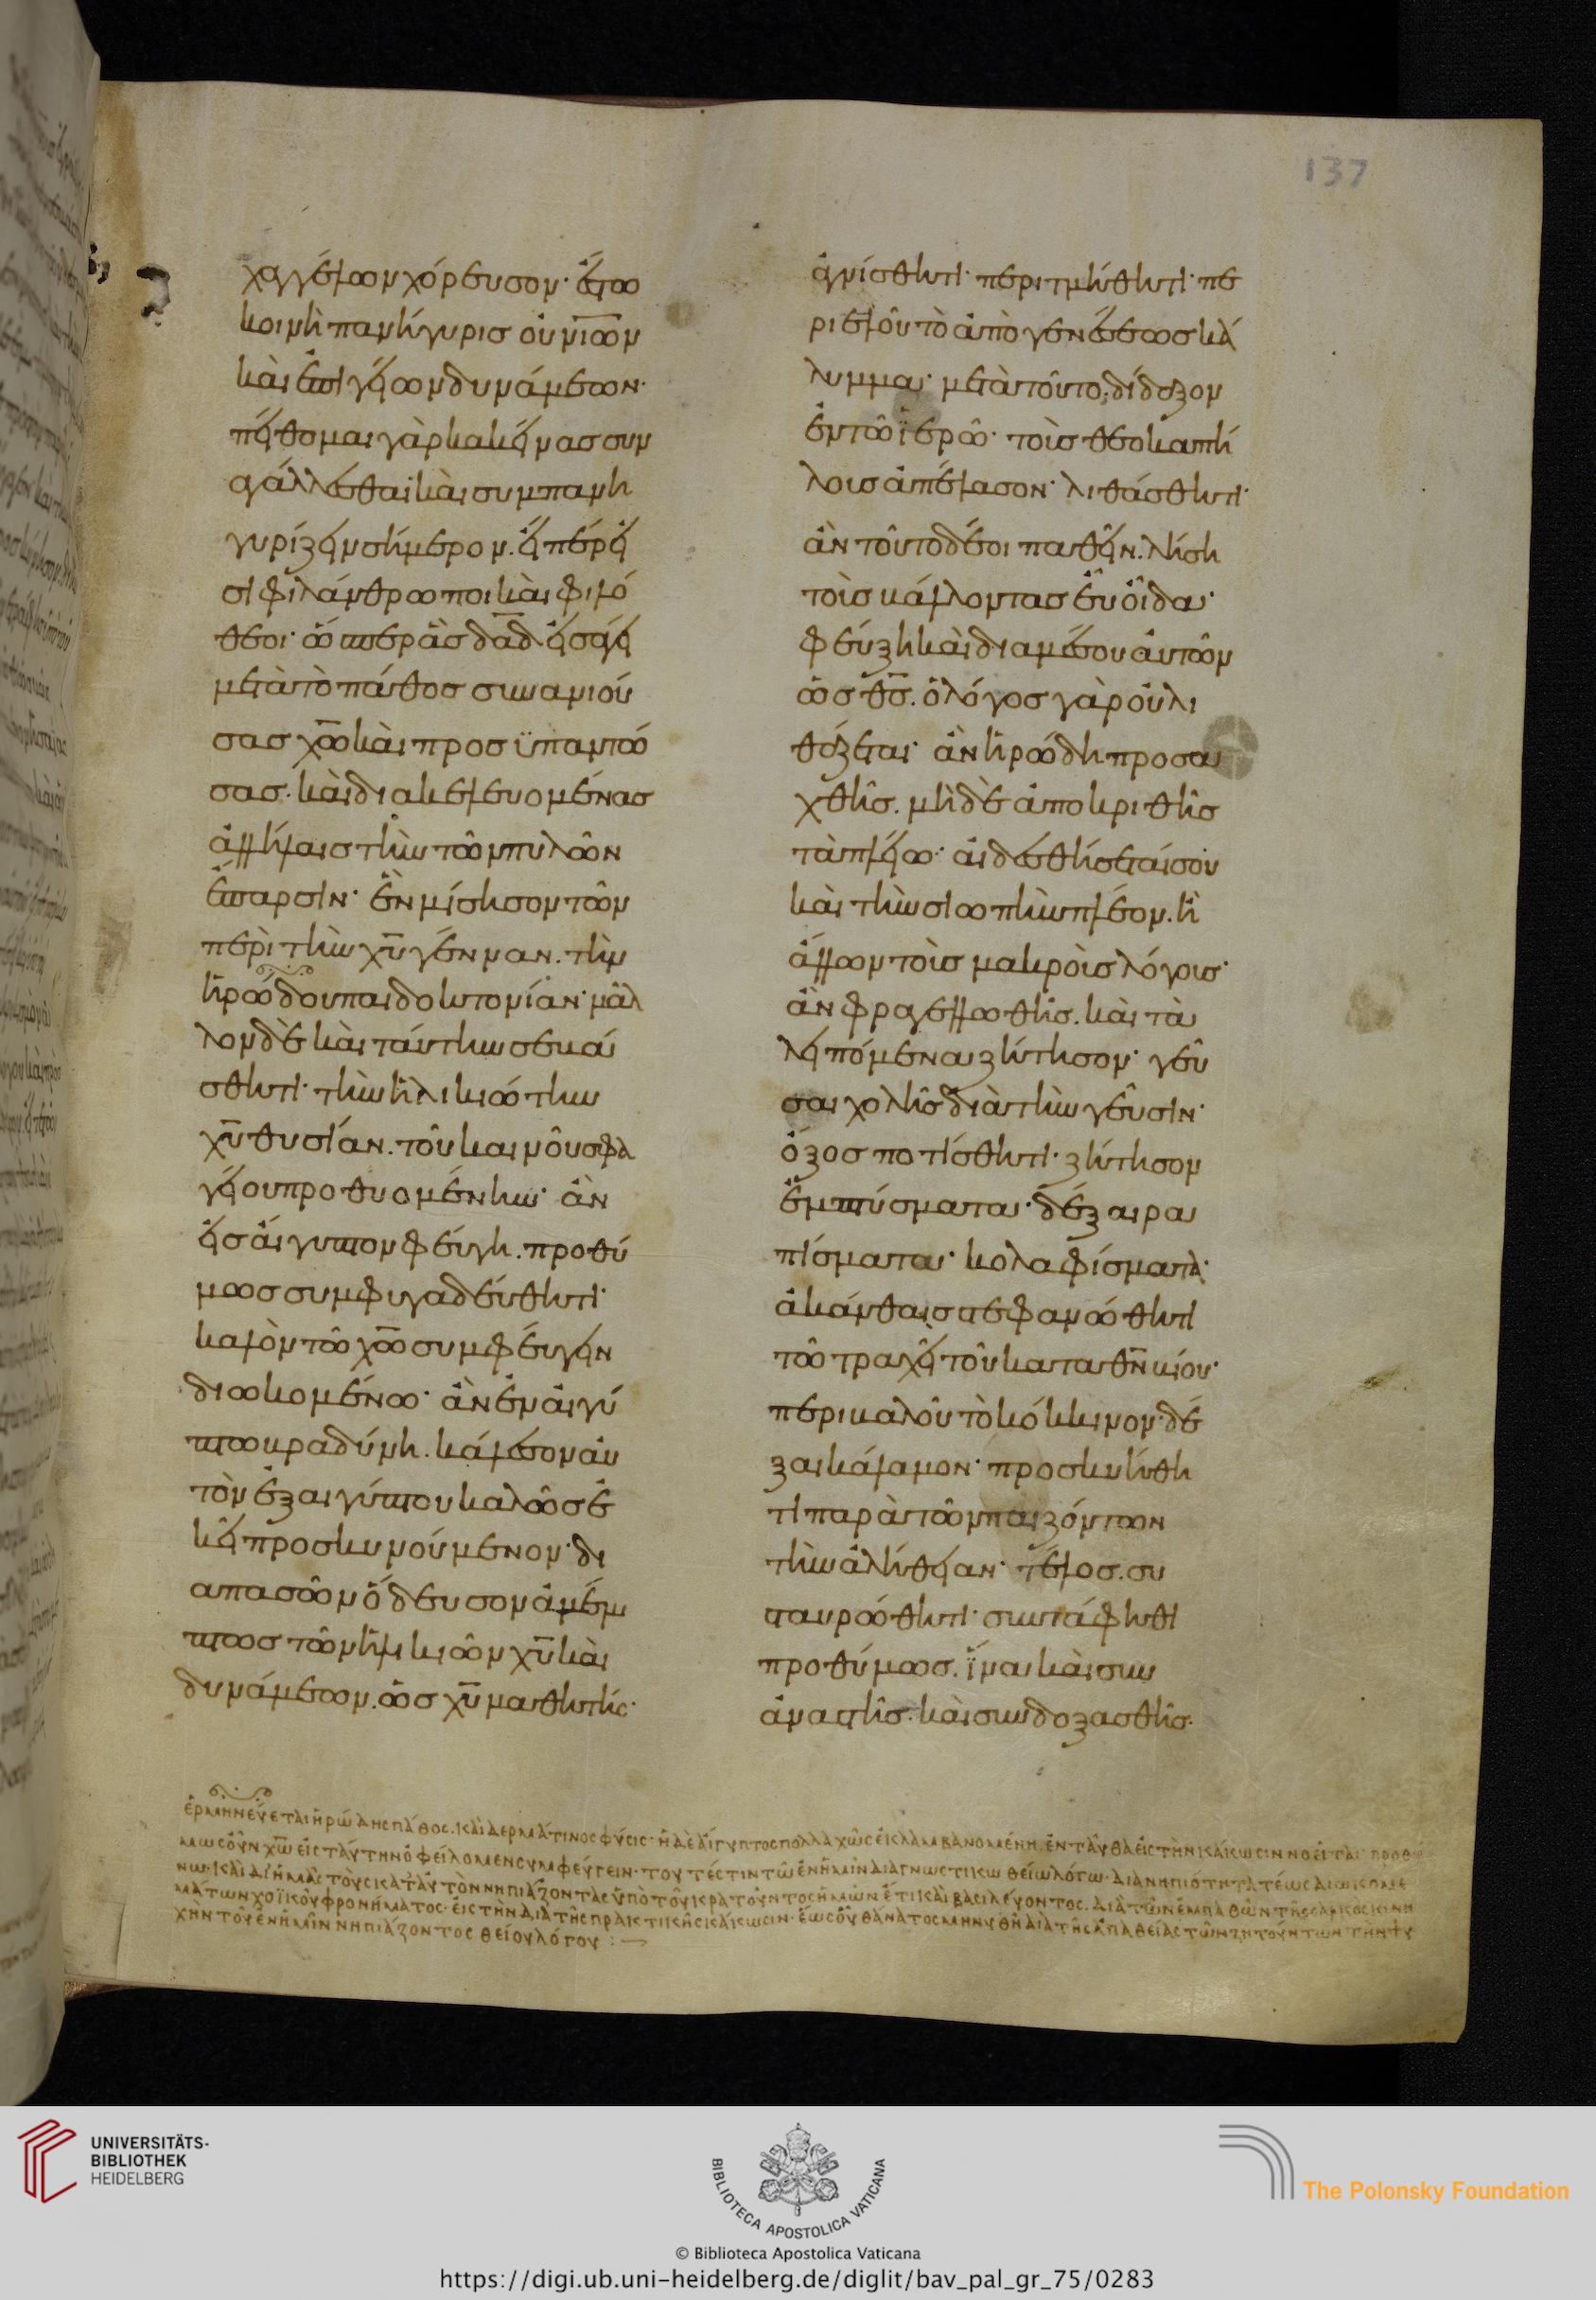 137
χαγγέλων χόρευσον· ἔστω
κοινὴ πανήγυρις οὐνίων
καὶ ἐπιγείων δυνάμεων·
πείθομαι γὰρ κακείνας συν
αγάλλεσθαι καὶ συμπανη
γυρίζειν σήμερον. εἴπερ εἰ
σὶ φιλάνθρωποι καὶ φιλό
θεοι· ὥσπερ ἃς δᾱδ εἰσάγει
μετὰ τὸ πάθος συνανιού
σας χ̄ω καὶ προσϋπαντώ
σας. καὶ διακελευομένας
ἀλλήλαις τὴν τῶν πυλῶν
ἔπαρσιν· ἓν μίσησον τῶν
περὶ τὴν χ̄υ γένναν. τὴν
ἡρώδου παιδοκτονίαν· μᾶλ
λον δὲ καὶ ταύτην σεβά
σθητι· τὴν ἡλικιώτιν
χ̄υ θυσίαν. τοῦ καινοῦ σφα
γείου προθυομένην· ἂν
εἰς αἴγυπτον φεύγη. προθύ
μως συμφυγαδεύθητι·
καλὸν τῶ χ̄ω συμφεύγειν
διωκομένω· ἂν ἐν αἰγύ
πτω βραδύνη. κάλεσον αὐ
τὸν ἐξ αιγύπτου καλῶς ἐ
κεῖ προσκυνούμενον· δι
α πασῶν ὅδευσον ἀμέμ
πτως τῶν ἡλικιῶν χ̄υ καὶ
δυνάμεων. ὡς χ̄υ μαθητής·
ἁγνίσθητι· περιτμήθητι· πε
ριελοῦ τὸ ἀπὸ γενέσεως κά
λυμμα· μετὰ τοῦτο, δίδαξον
ἐν τῶ ἱερῶ· τοὺς θεοκαπή
λους ἀπέλασον· λιθάσθητι·
ἂν τοῦτο δέοι παθεῖν. λήση
τοὺς βάλλοντας εὖ οἶδα·
φεύξη καὶ δια μέσου αὐτῶν
ὡς θ̄ς. ὁ λόγος γὰρ οὐ λι
θάζεται· ἂν ἡρώδη προσα
χθῆς. μηδὲ ἀποκριθῆς
τὰ πλείω· αἰδεσθήσεταί σου
καὶ τὴν σιωπὴν πλέον. ἢ
ἄλλων τοὺς μακροὺς λόγους·
ἂν φραγελλωθῆς. καὶ τὰ
λειπόμενα ζήτησον· γεῦ
σαι χολῆς διὰ τὴν γεῦσιν·
ὄξος ποτίσθητι· ζήτησον
ἐμπτύσματα· δέξαι ρα
πίσματα· κολαφίσματα·
ἀκάνθαις στεφανώθητι
τῶ τραχεῖ τοῦ κατα θ̄ν βίου·
περιβαλοῦ τὸ κόκκινον· δέ
ξαι κάλαμον· προσκυνήθη
τι παρὰ τῶν παιζόντων
τὴν ἀλήθειαν· τέλος. συ
σταυρώθητι· συντάφηθι
προθύμως. ἵνα καὶ συν
ἀναστῆς. καὶ συνδοξασθῆς.
ἑρμηνεύεται ἡρώδης πάθος. καὶ δερμάτινος φύσις· ἡ δὲ αἴγυπτος πολλαχῶς ἐκλαμβανομένη. ἐνταῦθα εἰς τὴν κάκωσιν νοεῖται προθύ
μως οὖν χ̄ω εἰς ταύτην ὀφείλομεν συμφεύγειν· τουτέστιν τῶ ἐν ἡμῖν διαγνωστικω θείω λόγω· δια νηπιότητα τέως διωκομέ
νω· καὶ δι' ἡμᾶς τοὺς κατ' αὐτὸν νηπιάζοντας ὑπὸ τοῦ κρατοῦντος ἡμῶν ἔτι καὶ βασιλεύοντος. διὰ τῶν ἐμπαθῶν τῆς σαρκὸς κινη
μάτων χοϊκοῦ φρονήματος· εἰς τὴν διὰ τῆς πρακτικῆς κάκωσιν· ἕως οὗ θάνατος μηνυθῆ διὰ τῆς ἀπαθείας τῶν ζητούντων τὴν ψυ
χὴν τοῦ ἐν ἡμῖν νηπιάζοντος θείου λόγου :—
UNIVERSITÄTS-
BIBLIOTHEK
HEIDELBERG
BIBLIOTECA APOSTOLICA VATICANA
The Polonsky Foundation
© Biblioteca Apostolica Vaticana
https://digi.ub.uni-heidelberg.de/diglit/bav_pal_gr_75/0283